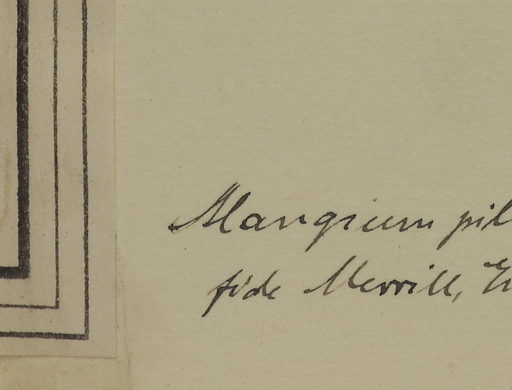 Mangium pil
fide Merrill, En